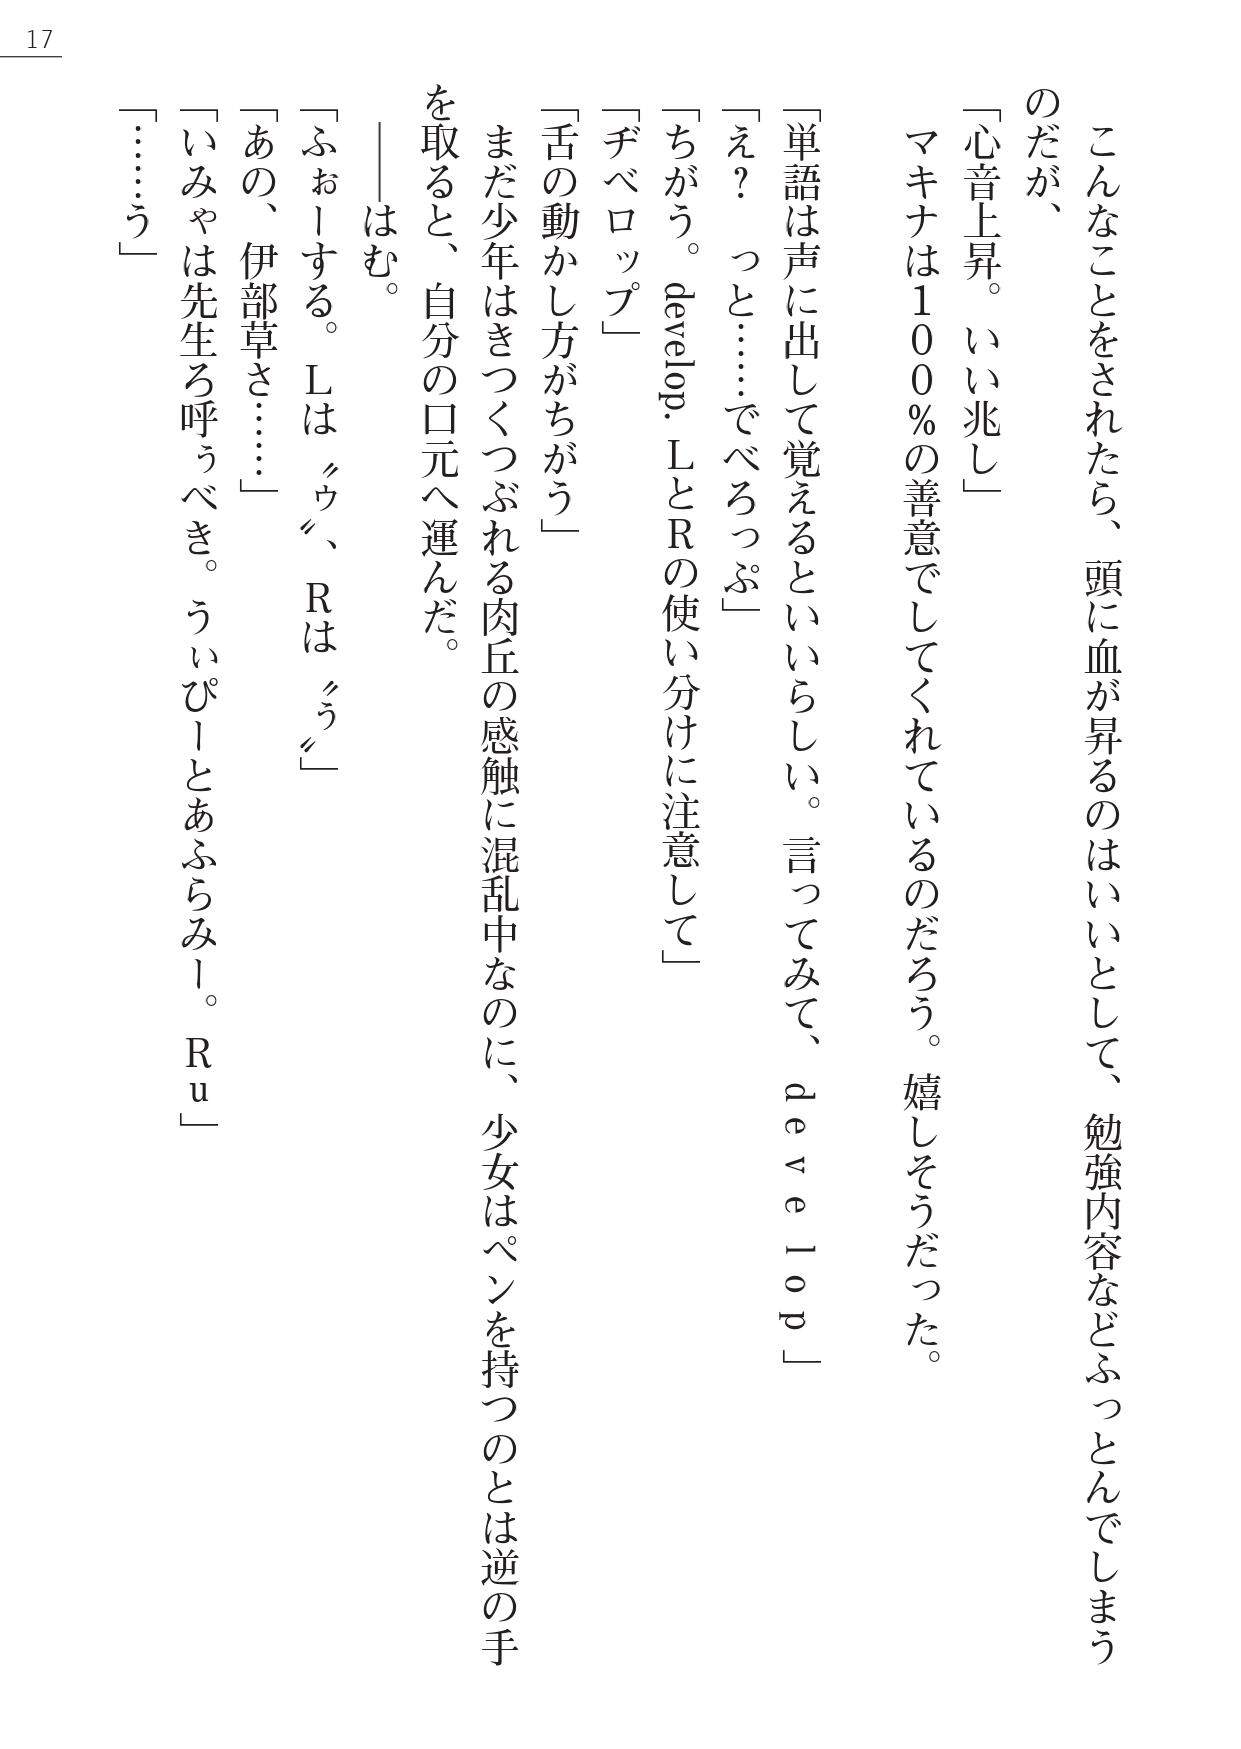 17
　こんなことをされたら、頭に血が昇るのはいいとして、勉強内容などふっとんでしまう
のだが、
「心音上昇。いい兆し」
　マキナは１００％の善意でしてくれているのだろう。嬉しそうだった。
「単語は声に出して覚えるといいらしい。言ってみて、ｄｅｖｅｌｏｐ」
「え？　っと……でべろっぷ」
「ちがう。develop. ＬとＲの使い分けに注意して」
「ヂベロップ」
「舌の動かし方がちがう」
　まだ少年はきつくつぶれる肉丘の感触に混乱中なのに、少女はペンを持つのとは逆の手
を取ると、自分の口元へ運んだ。
　――はむ。
「ふぉーする。Ｌは〝ゥ〟、Ｒは〝ぅ〟」
「あの、伊部草さ……」
「いみゃは先生ろ呼ぅべき。うぃぴーとあふらみー。Ｒｕ」
「……う」